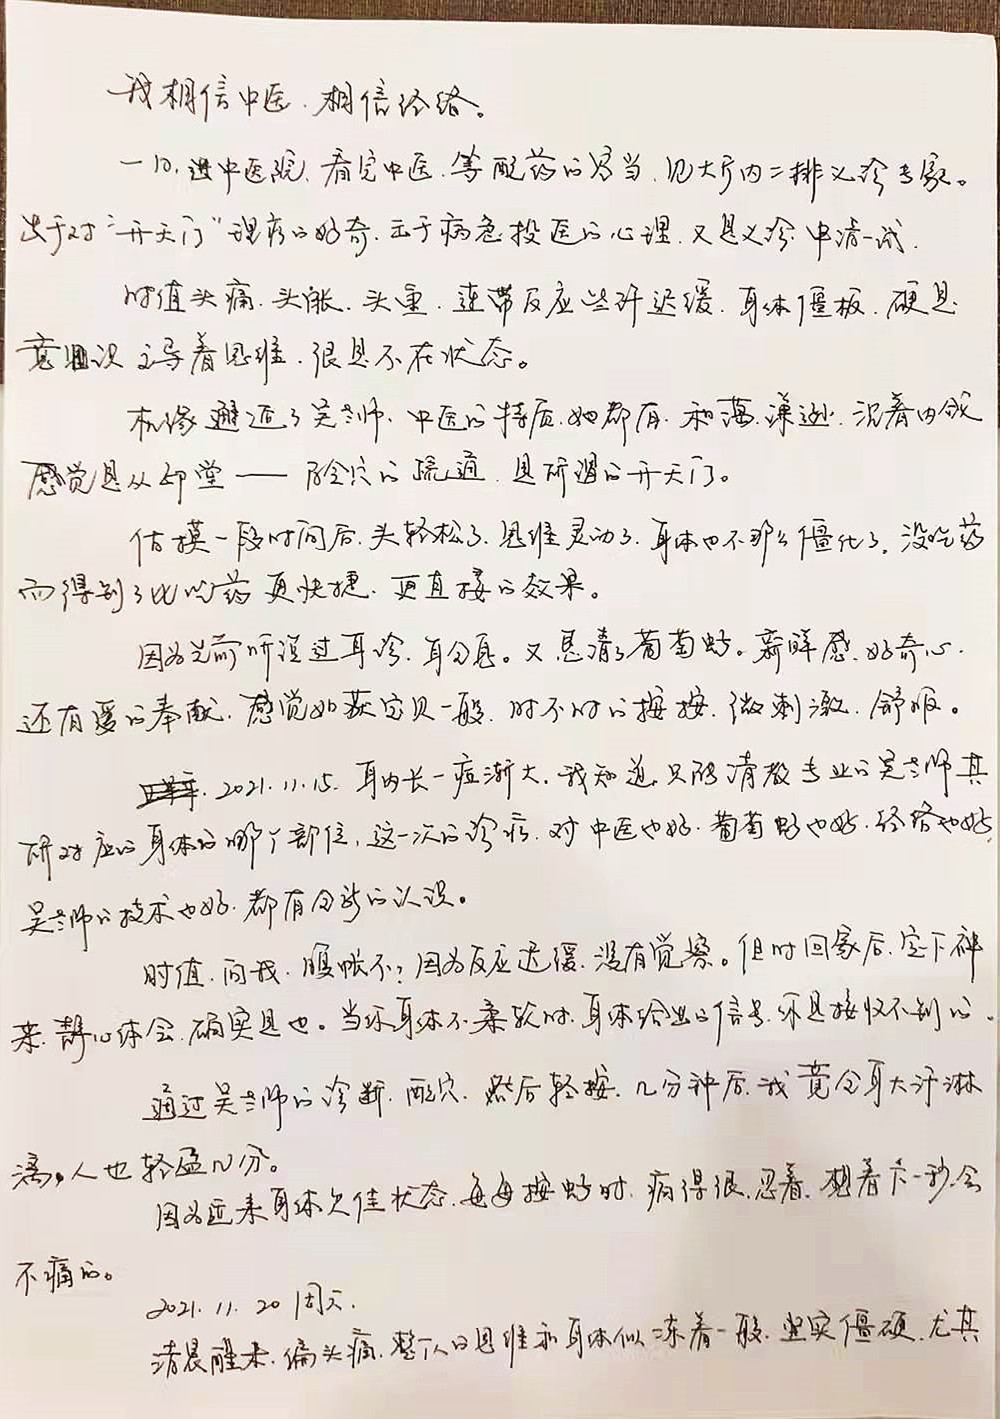 我相信中医、相信经络。
一日,进中医院、看完中医、等配药的窗当、见大厅内二排义诊专家。
出于对“开天门”理疗的好奇、至于病急投医的心理、又是义诊、申请一试、
时值头痛、头胀、头重、连带反应些许迟缓、身体僵板、硬是
意识主导着思维、很是不在状态。
机缘邂逅了吴老师、中医的特质、她都有、和蔼、谦逊、沉着内敛
感觉是从印堂——穴的疏通、是所谓的开天门。
估摸一段时间后、头轻松了、思维灵动了、身体也不那么僵化了、没吃药
而得到了比吃药更快捷、更直接的效果。
因为之前听说过耳诊、耳分息。又恳请了葡萄籽。新鲜感、好奇心、
还有爱的奉献、感觉如获宝贝一般、时不时的按按、微刺激、舒服。
2021.11.15、耳内长一痘渐大、我知道、只能请教专业的吴老师其
所对应的身体的哪个部位、这一次的诊疗、对中医也好、葡萄籽也好、经络也好、
吴老师的技术也好、都有全新的认识。
时值、问我、腹帐不?因为反应迟缓、没有觉察。但时回家后、定下神
来、静心体会、确实是也。当你身体不柔软时、身体给出的信号、你是接收不到的、
通过吴老师的诊断、配穴、然后轻按、几分钟后、我竟全身大汗淋
漓、人也轻盈几分。
因为近来身体欠佳状态、每每按籽时、痛得很、忍着、想着下一秒会
不痛的。
2021.11.20周六、
清晨醒来、偏头痛、整个人的思维和身体似冻着一般、坚实僵硬、尤其